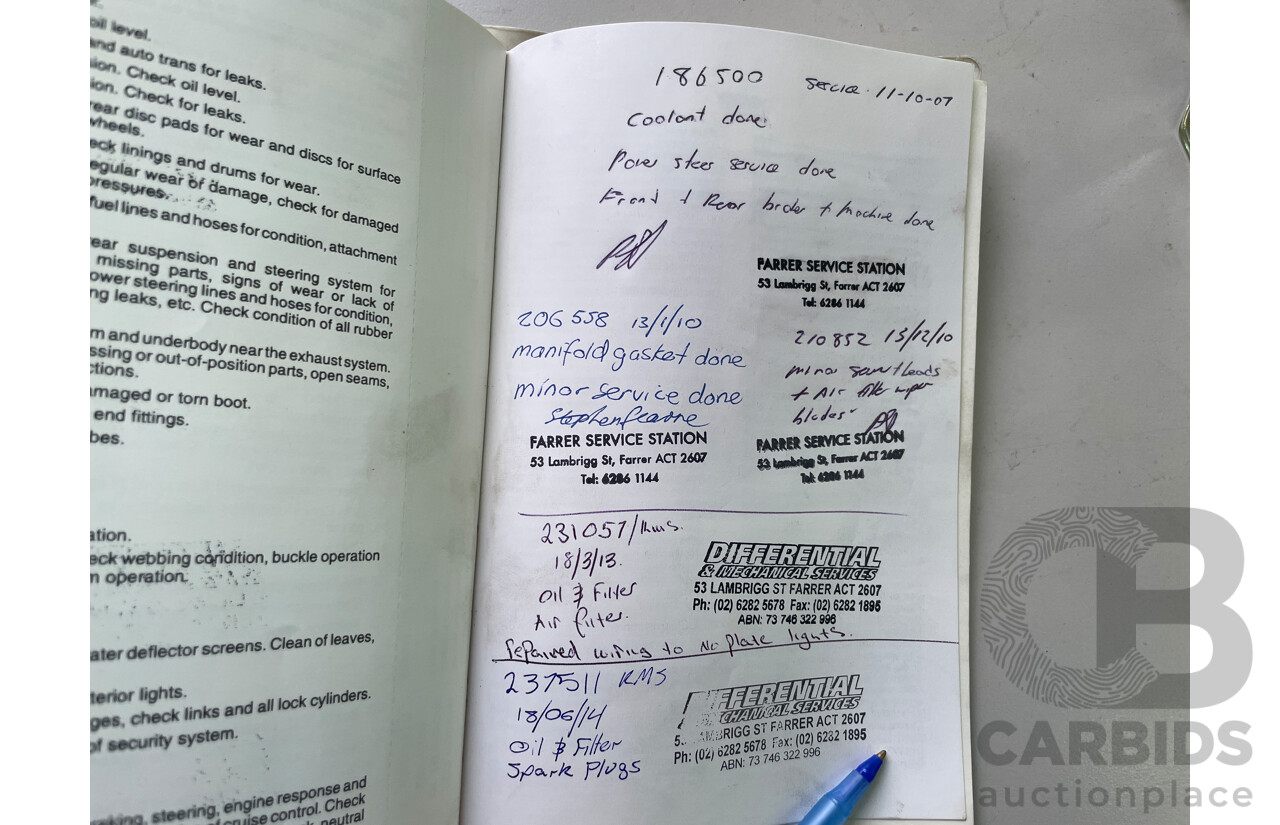 oil level.
and auto trans for leaks.
ion. Check oil level.
ion. Check for leaks.
rear disc pads for wear and discs for surface
wheels.
eck linings and drums for wear.
egular wear of damage, check for damaged
pressures.
fuel lines and hoses for condition, attachment
ear suspension and steering system for
missing parts, signs of wear or lack of
ower steering lines and hoses for condition,
ng leaks, etc. Check condition of all rubber
m and underbody near the exhaust system.
ssing or out-of-position parts, open seams,
ctions.
amaged or torn boot.
end fittings.
bes.
ation.
eck webbing condition, buckle operation
n operation.
ater deflector screens. Clean of leaves,
terior lights.
ges, check links and all lock cylinders.
of security system.
aking, steering, engine response and
of cruise control. Check
neutral
186500 Service. 11-10-07
Coolant done.
Power steer service done
Front + Rear brakes + Machine done
FARRER SERVICE STATION
53 Lambrigg St, Farrer ACT 2607
Tel: 6286 1144
206 558 13/1/10
manifold gasket done
minor service done
FARRER SERVICE STATION
53 Lambrigg St, Farrer ACT 2607
Tel: 6286 1144
210852 15/12/10
minor leads
+ Air filter wiper
blades
FARRER SERVICE STATION
53 Lambrigg St, Farrer ACT 2607
Tel: 6286 1144
231057/kms.
18/3/13.
Oil & Filter
Air filter.
repaired wiring to No plate lights.
DIFFERENTIAL
& MECHANICAL SERVICES
53 LAMBRIGG ST FARRER ACT 2607
Ph: (02) 6282 5678 Fax: (02) 6282 1895
ABN: 73 746 322 996
237511 KMS
18/06/14
Oil & Filter
Spark Plugs
IFFERENTIAL
MECHANICAL SERVICES
5 LAMBRIGG ST FARRER ACT 2607
Ph: (02) 6282 5678 Fax: (02) 6282 1895
ABN: 73 746 322 996
CB
CARBIDS
auctionplace